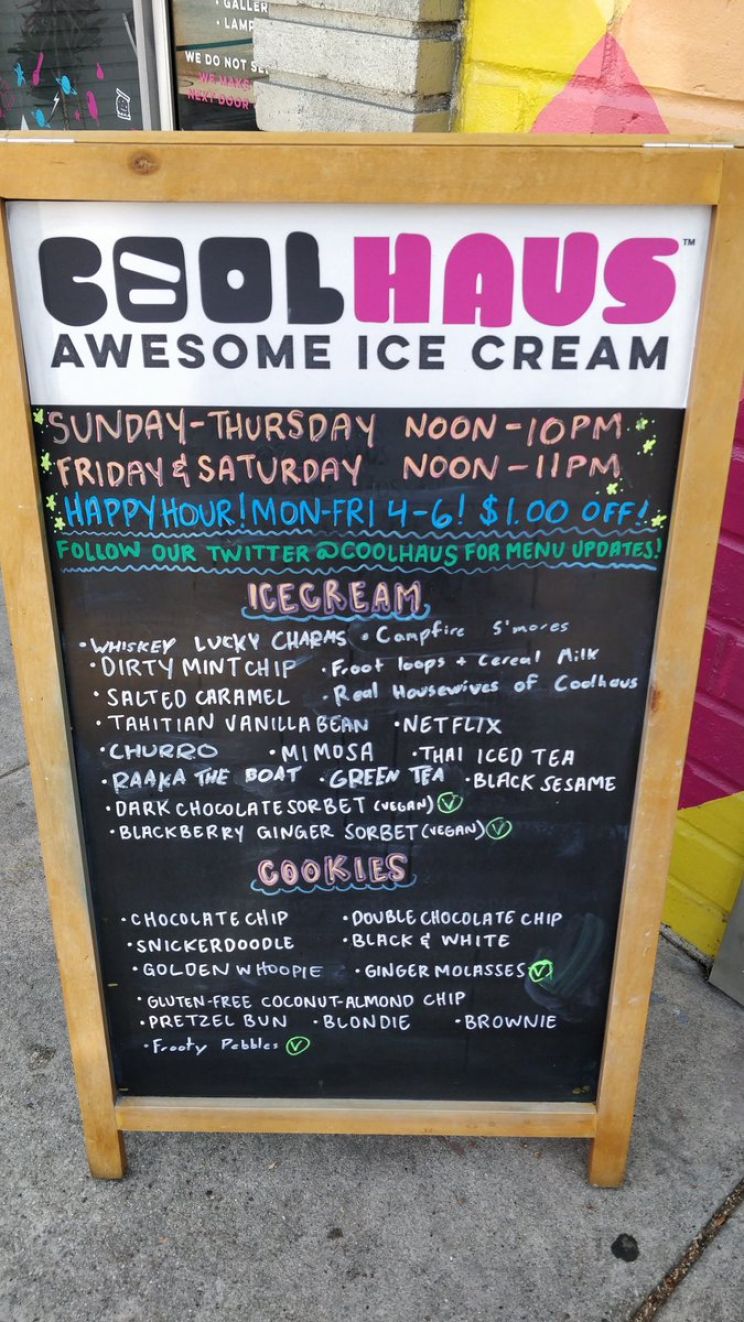 • GALLER
• LAMP
WE DO NOT SE
WE MAKE
NEXT DOOR
COOLHAUS™
AWESOME ICE CREAM
SUNDAY-THURSDAY NOON-10PM
FRIDAY & SATURDAY NOON-11PM
HAPPY HOUR! MON-FRI 4-6! $1.00 OFF!
FOLLOW OUR TWITTER @COOLHAUS FOR MENU UPDATES!
ICECREAM
• WHISKEY LUCKY CHARMS • Campfire S'mores
• DIRTY MINT CHIP • Froot loops + Cereal Milk
• SALTED CARAMEL • Real Housewives of Coolhaus
• TAHITIAN VANILLA BEAN • NETFLIX
• CHURRO • MIMOSA • THAI ICED TEA
• RAAKA THE BOAT • GREEN TEA • BLACK SESAME
• DARK CHOCOLATE SORBET (VEGAN) ✓
• BLACKBERRY GINGER SORBET (VEGAN) ✓
COOKIES
• CHOCOLATE CHIP • DOUBLE CHOCOLATE CHIP
• SNICKERDOODLE • BLACK & WHITE
• GOLDEN WHOOPIE • GINGER MOLASSES ✓
• GLUTEN-FREE COCONUT-ALMOND CHIP
• PRETZEL BUN • BLONDIE • BROWNIE
• Frooty Pebbles ✓